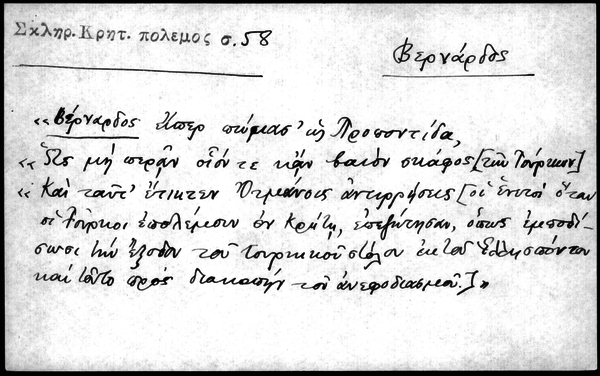 Σκληρ. Κρητ. πολεμος σ. 58
Βερνάρδος
«Βέρναρδος
Προποντίδα,
«Ὡς μὴ περᾶν οἷόν τε κἂν βαιὸν σκάφος [τῶν Τούρκων]
«Καὶ ταῦτ' ἔτικτεν Ὀτμάνοις ἀντιρρήσεις [οἱ Ἑνετοὶ ὅταν
οἱ Τοῦρκοι ἐπολέμουν ἐν Κρήτῃ, ἐπεζήτησαν, ὅπως ἐμποδί-
σωσι τὴν ἔξοδον τοῦ Τουρκικοῦ στόλου ἐκ τοῦ Ἑλλησπόντου
καὶ τοῦτο πρὸς διακοπὴν τοῦ ἀνεφοδιασμοῦ.]»